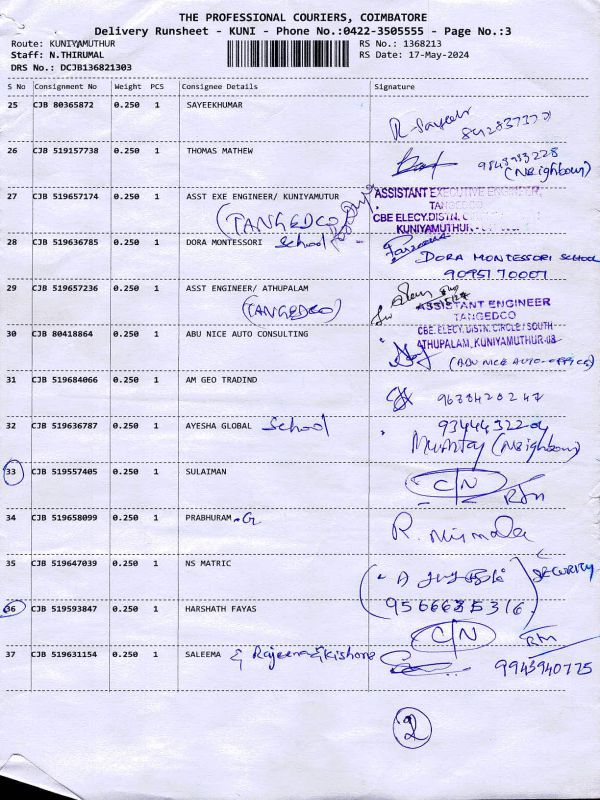 THE PROFESSIONAL COURIERS, COIMBATORE
Delivery Runsheet - KUNI - Phone No.:0422-3505555 - Page No.:3
Route: KUNIYAMUTHUR
RS No.: 1368213
Staff: N.THIRUMAL
RS Date: 17-May-2024
DRS No.: DCJB136821303
S No Consignment No Weight PCS Consignee Details Signature
25 CJB 80365872 0.250 1 SAYEEKHUMAR
R-Sayeek
26 CJB 519157738 0.250 1 THOMAS MATHEW
(Neighbour)
27 CJB 519657174 0.250 1 ASST EXE ENGINEER/ KUNIYAMUTUR
(TANGEDCO)
ASSISTANT EXECUTIVE ENGINEER,
TANGEDCO
CBE ELECY.DISTN.
KUNIYAMUTHUR
28 CJB 519636785 0.250 1 DORA MONTESSORI School
DORA MONTESSORI SCHOOL
9095170007
29 CJB 519657236 0.250 1 ASST ENGINEER/ ATHUPALAM
(TANGEDCO)
ASSISTANT ENGINEER
TANGEDCO
CBE. ELECY. DISTN. CIRCLE / SOUTH
ATHUPALAM, KUNIYAMUTHUR-08
30 CJB 80418864 0.250 1 ABU NICE AUTO CONSULTING
(ABU NICE AUTO-OFFICE)
31 CJB 519684066 0.250 1 AM GEO TRADIND
9638420247
32 CJB 519636787 0.250 1 AYESHA GLOBAL School
9344432204
(Neighbour)
33 CJB 519557405 0.250 1 SULAIMAN
C/N
34 CJB 519658099 0.250 1 PRABHURAM.G
R. Nirmala
35 CJB 519647039 0.250 1 NS MATRIC
SECURITY
9566685316
36 CJB 519593847 0.250 1 HARSHATH FAYAS
C/N
37 CJB 519631154 0.250 1 SALEEMA & Rajeena & Kishore
9943940775
2